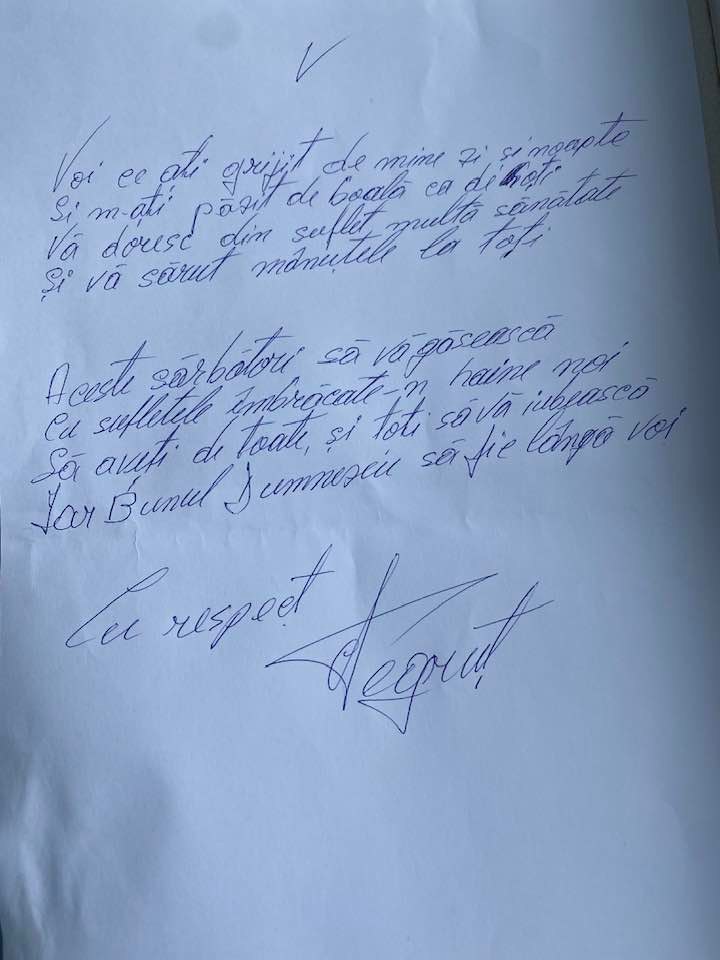 V
Voi ce ați grijit de mine zi și noapte
Și m-ați păzit de boală ca de hoți
Vă doresc din suflet multă sănătate
Și vă sărut mânuțele la toți
Aceste sărbători să vă găsească
Cu sufletele îmbrăcate-n haine noi
Să aveți de toate, și toți să vă iubească
Iar Bunul Dumnezeu să fie lângă voi
Cu respect Negruț